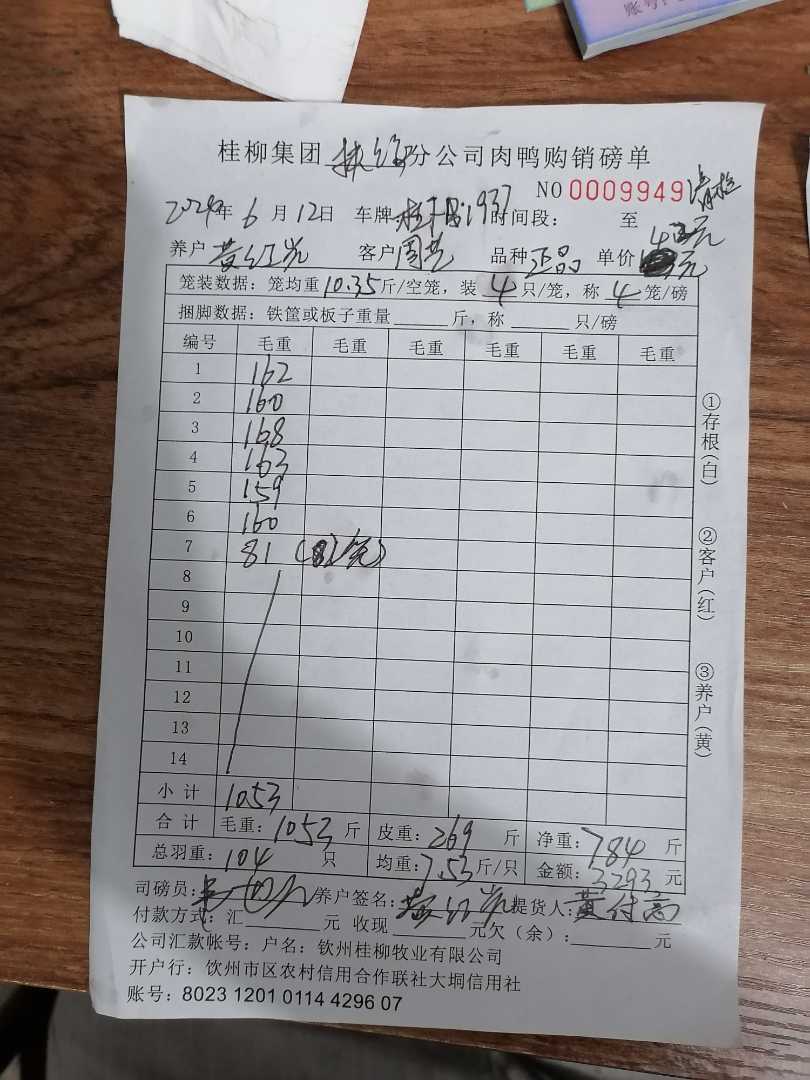 账号:
桂柳集团 分公司肉鸭购销磅单
NO 0009949 请检
2024年 6 月 12日 车牌 1937 时间段: 至
养户 黄红光 客户 周芒 品种 正品 单价 元
笼装数据: 笼均重 10.35 斤/空笼, 装 4 只/笼, 称 4 笼/磅
捆脚数据: 铁筐或板子重量 斤, 称 只/磅
编号 毛重 毛重 毛重 毛重 毛重 毛重
1 162
2 160
3 168
4 163
5 159
6 160
7 81
8
9
10
11
12
13
14
小计 1053
合计 毛重: 1053 斤 皮重: 269 斤 净重: 784 斤
总羽重: 104 只 均重: 7.53 斤/只 金额: 3293 元
司磅员: 养户签名: 黄红光 提货人: 黄付高
付款方式: 汇 元 收现 元欠(余): 元
公司汇款帐号: 户名: 钦州桂柳牧业有限公司
开户行: 钦州市区农村信用合作联社大垌信用社
账号: 8023 1201 0114 4296 07
①存根(白)
②客户(红)
③养户(黄)